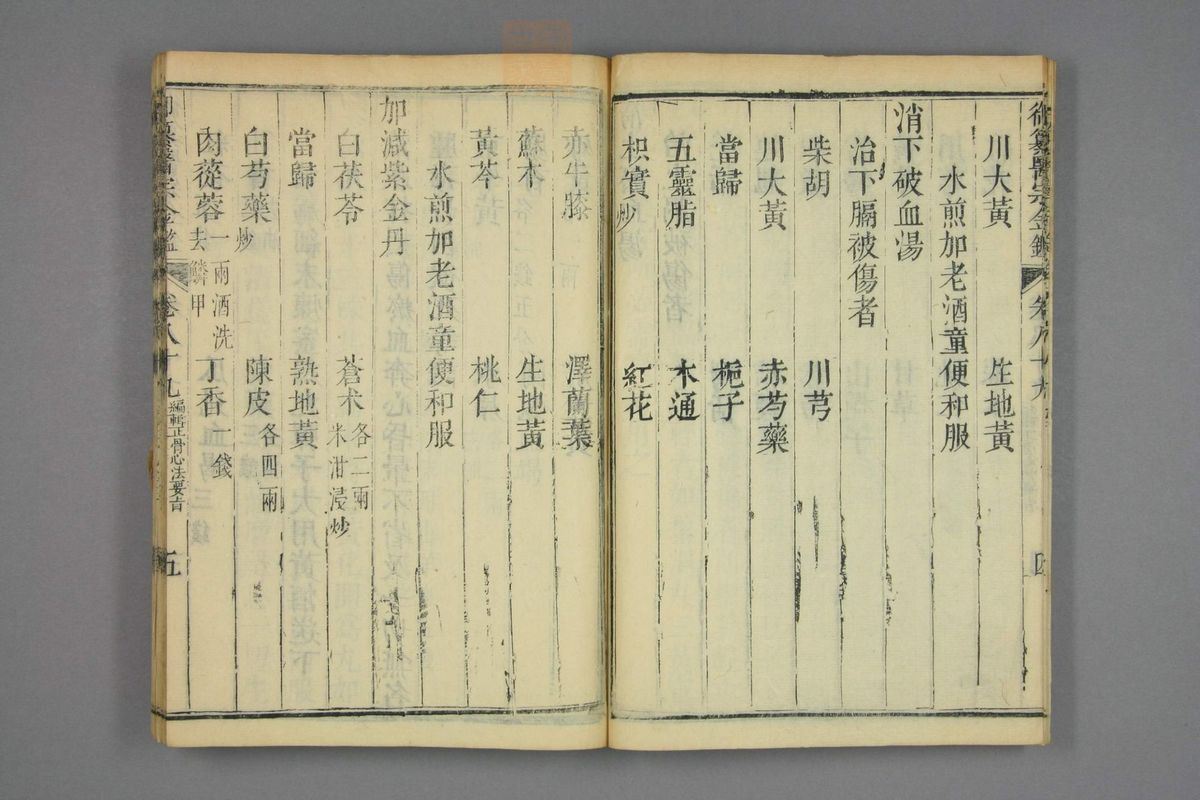 御纂醫宗金鑑 卷八十九 四
川大黃 生地黃
水煎加老酒童便和服
消下破血湯
治下膈被傷者
柴胡 川芎
川大黃 赤芍藥
當歸 梔子
五靈脂 木通
枳實炒 紅花
赤牛膝 澤蘭葉
蘇木 生地黃
黃芩 桃仁
水煎加老酒童便和服
加減紫金丹
白茯苓 蒼朮各二兩米泔浸炒
當歸 熟地黃
白芍藥炒 陳皮各四兩
肉蓯蓉一兩酒洗去鱗甲 丁香一錢
御纂醫宗金鑑 卷八十九 編輯正骨心法要旨 五